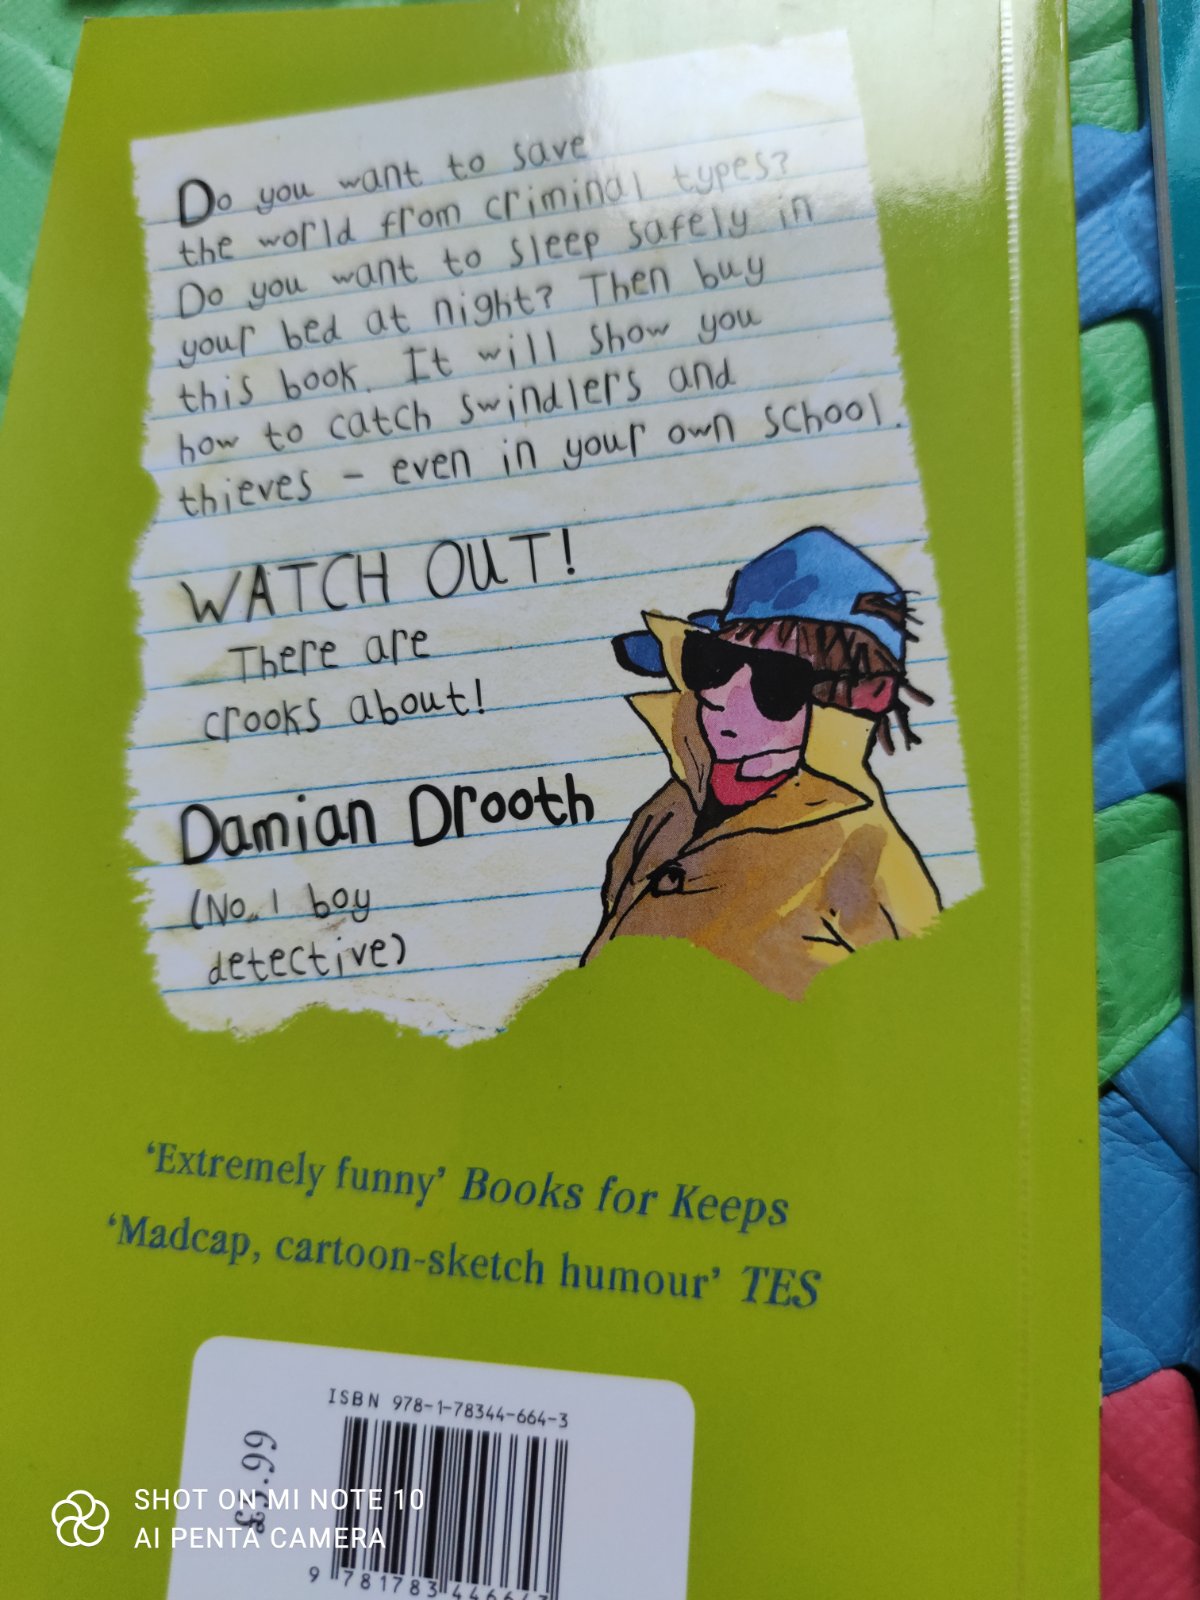 Do you want to save
the world from criminal types?
Do you want to sleep safely in
your bed at night? Then buy
this book. It will show you
how to catch swindlers and
thieves – even in your own school.
WATCH OUT!
There are
crooks about!
Damian Drooth
(No. 1 boy
detective)
‘Extremely funny’ Books for Keeps
‘Madcap, cartoon-sketch humour’ TES
ISBN 978-1-78344-664-3
9 781783 446643
SHOT ON MI NOTE 10
AI PENTA CAMERA